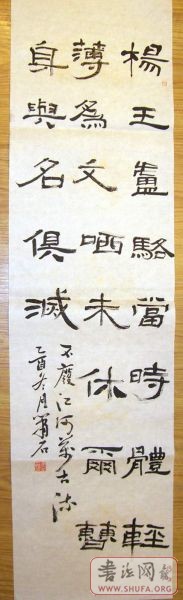 楊王盧駱當時體輕
薄為文哂未休爾曹
身與名俱滅
不廢江河萬古流
乙酉冬月
WWW.SHUFA.ORG